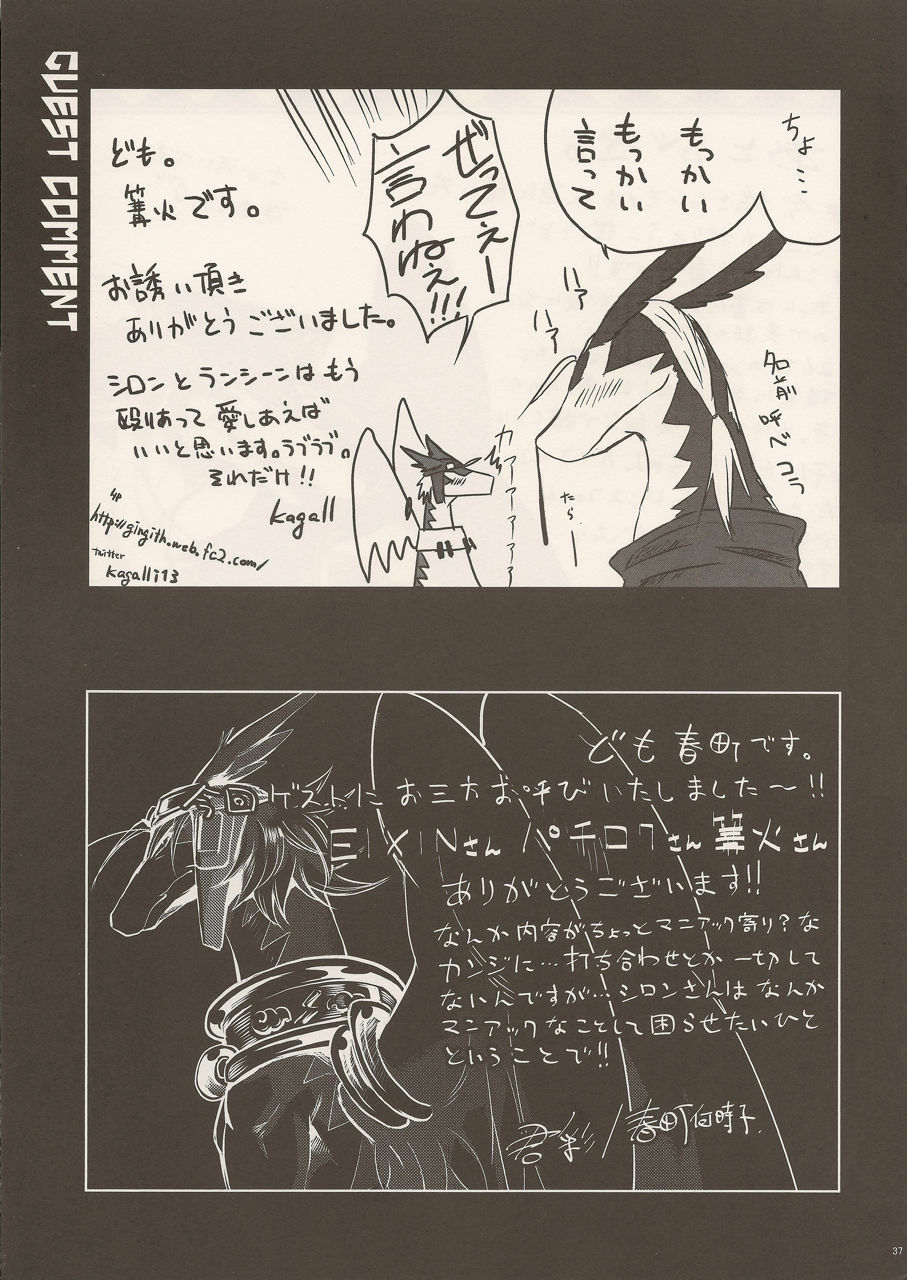 GUEST COMMENT
ちょ…
もっかい
もっかい
言って
ぜってぇー
言わねぇ!!!
ハァ
ハァ
名前
呼べ
コラ
カァァァァァ
たら
ども。
篝火です。
お誘い頂き
ありがとうございました。
シロンとランシーンはもう
殴りあって愛しあえば
いいと思います。ラブラブ。
それだけ!!
kagall
HP
http://gingith.web.fc2.com/
twitter
kagalli13
ども春町です。
ゲストにお三方お呼びいたしました〜!!
EIXINさん パチロクさん 篝火さん
ありがとうございます!!
なんか内容がちょっとマニアック寄り?な
カンジに…打ち合わせとか一切して
ないんですが…シロンさんはなんか
マニアックなことして困らせたいひと
ということで!!
君彩/春町何時子
37